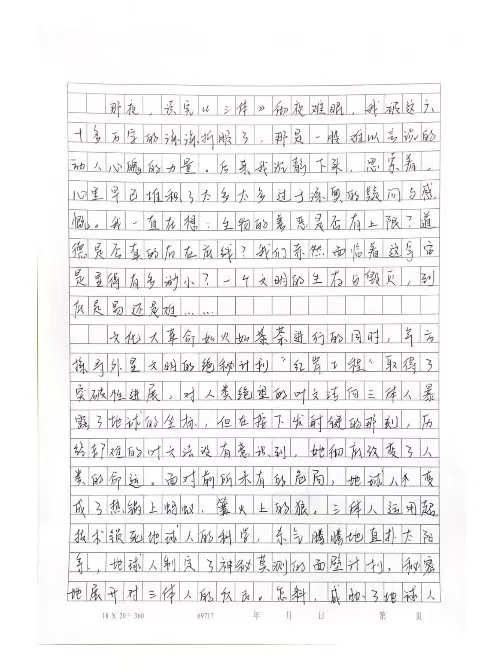 那夜，读完《三体》彻夜难眠，我被这六
十多万字的深深折服了，那是一股难以言说的
动人心魄的力量。后来我沉静下来，思索着，
心里早已堆积了太多太多过于深奥的疑问与感
慨。我一直在想：生物的善恶是否有上限？道
德是否真的存在底线？我们亲然面临着这宇宙
是显得有多渺小？一个文明的生存与颓灭，到
底是易还是难……
文化大革命如火如荼荼进行的同时，军方
探寻外星文明的绝秘计划“红岸工程”取得了
突破性进展。对人类绝望的叶文洁向三体人暴
露了地球的坐标，但在按下发射键的那刻，历
经苦难的叶文洁没有意识到，她彻底改变了人
类的命运。面对前所未有的危局，地球人和变
成了热锅上蚂蚁，篝火上的狼。三体人运用超
技术锁死地球人的科学，杀气腾腾地直扑太阳
系，地球人制定了神秘莫测的面壁计划，秘密
地展开对三体人的反击。怎料，威胁了地球人
18 X 20＝360 69717 年 月 日 第 页